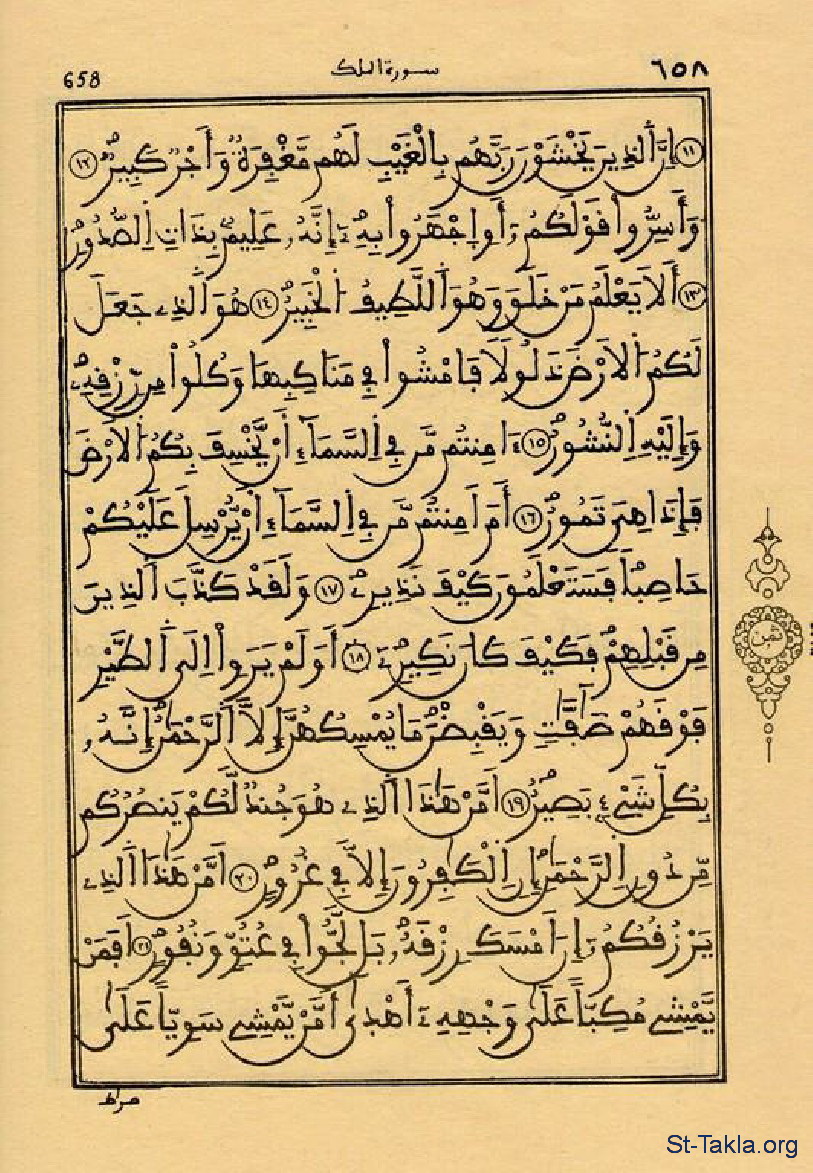 ٦٥٨ سورة الملك 658
١١ إِنَّ ٱلذِينَ يَخْشَوْنَ رَبَّهُم بِالْغَيْبِ لَهُم مَّغْفِرَةٌ وَأَجْرٌ كَبِيرٌ ١٢
وَأَسِرُّواْ قَوْلَكُمُۥٓ أَوِ اِجْهَرُواْ بِهِۦٓ إِنَّهُۥ عَلِيمٌ بِذَاتِ اِ۬لصُّدُورِ
١٣ أَلَا يَعْلَمُ مَنْ خَلَقَ وَهُوَ اَ۬للَّطِيفُ اُ۬لْخَبِيرُ ١٤ هُوَ اَ۬لذِے جَعَلَ
لَكُمُ اُ۬لَارْضَ ذَلُولاً فَامْشُواْ فِے مَنَاكِبِهَا وَكُلُواْ مِن رِّزْقِهِۦ
وَإِلَيْهِ اِ۬لنُّشُورُ ١٥ ءَامِنتُم مَّن فِے اِ۬لسَّمَآءِ أَنْ يَّخْسِفَ بِكُمُ اُ۬لَارْضَ
فَإِذَا هِيَ تَمُورُ ١٦ أَمَ اَمِنتُم مَّن فِے اِ۬لسَّمَآءِ انْ يُّرْسِلَ عَلَيْكُمْ
حَاصِباً فَسَتَعْلَمُونَ كَيْفَ نَذِيرِۦ ١٧ وَلَقَدْ كَذَّبَ اَ۬لذِينَ
مِن قَبْلِهِمْ فَكَيْفَ كَانَ نَكِيرِۦٓ ١٨ أَوَلَمْ يَرَوِاْ اِلَى اَ۬لطَّيْرِ
فَوْقَهُمْ صَٰٓفَّٰتٍ وَيَقْبِضْنَ مَا يُمْسِكُهُنَّ إِلَّا اَ۬لرَّحْمَٰنُ إِنَّهُۥ
بِكُلِّ شَےْءٍ بَصِيرٌ ١٩ اَمَّنْ هَٰذَا اَ۬لذِے هُوَ جُندٌ لَّكُمْ يَنصُرُكُم
مِّن دُونِ اِ۬لرَّحْمَٰنِ إِنِ اِ۬لْكَٰفِرُونَ إِلَّا فِے غُرُورٍ ٢٠ اَمَّنْ هَٰذَا اَ۬لذِے
يَرْزُقُكُمُۥٓ إِنَ اَمْسَكَ رِزْقَهُۥ بَل لَّجُّواْ فِے عُتُوٍّ وَنُفُورٍ ٢١ اَفَمَنْ
يَّمْشِے مُكِبّاً عَلَىٰ وَجْهِهِۦٓ أَهْدَىٰٓ أَمَّنْ يَّمْشِے سَوِيّاً عَلَىٰ
صراط
ثمن
St-Takla.org